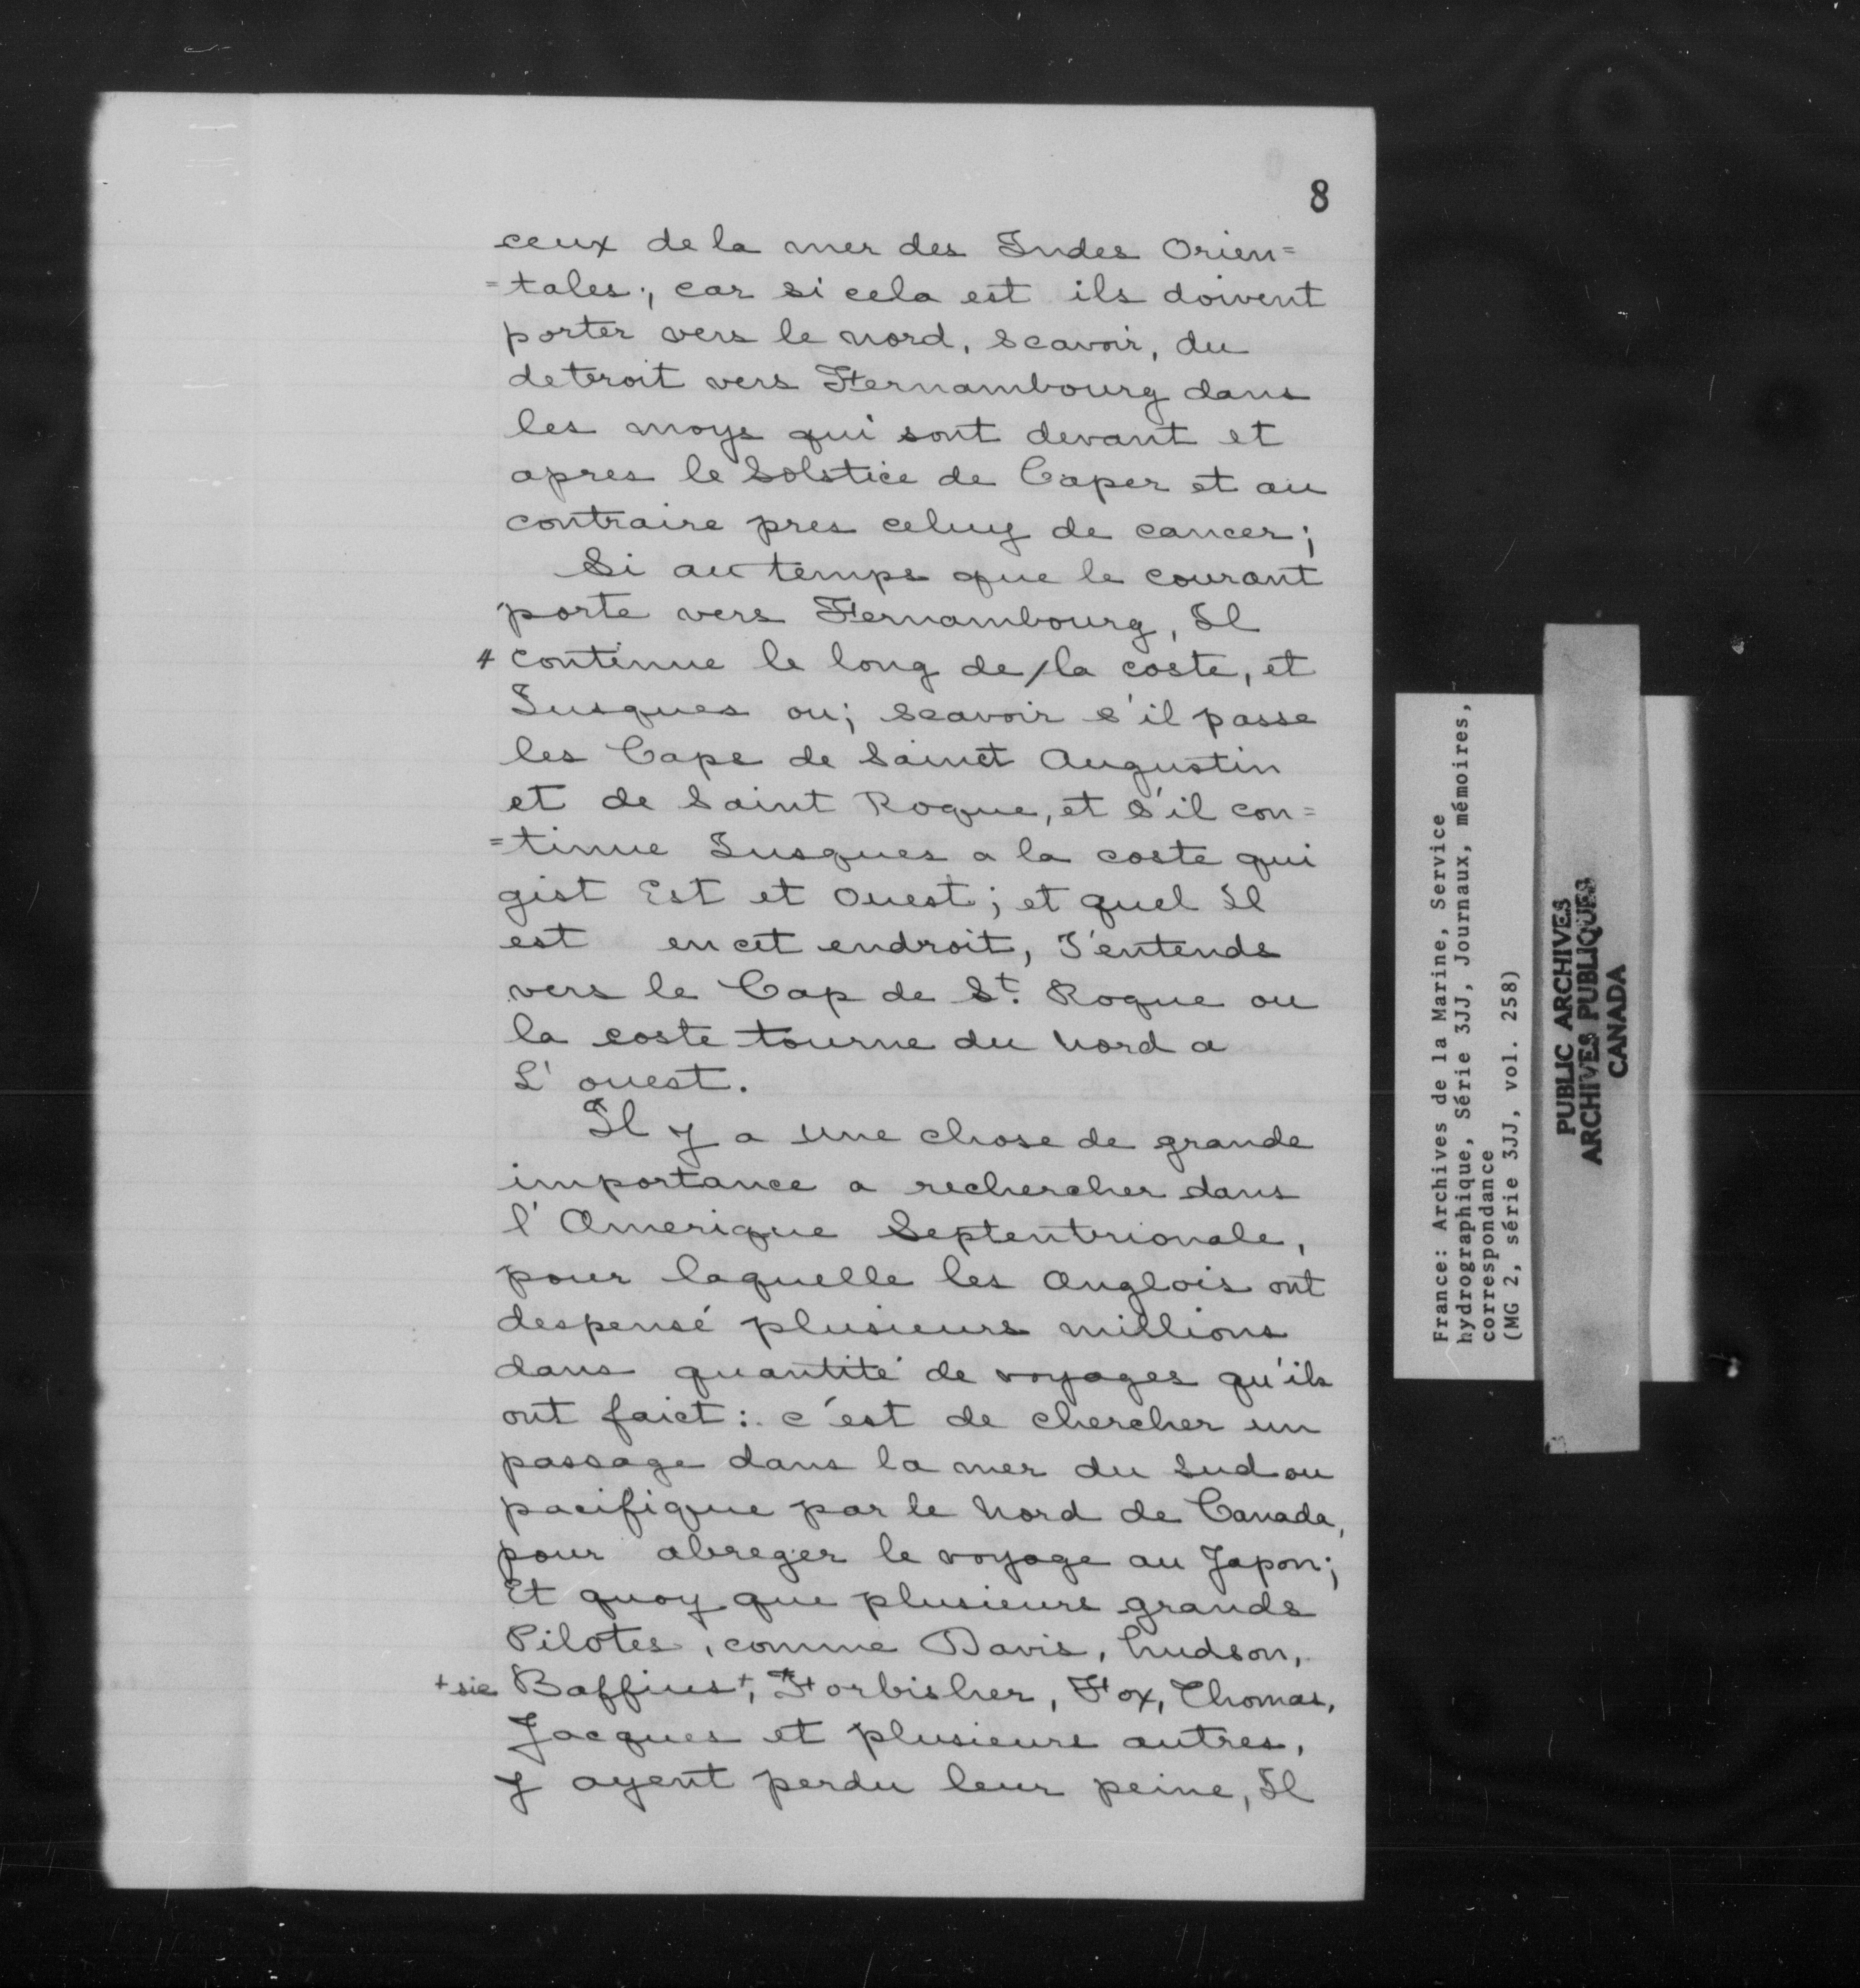 8
ceux de la mer des Indes Orien=
=tales; car si cela est ils doivent
porter vers le nord, scavoir, du
detroit vers Fernambourg dans
les moys qui sont devant et
apres le Solstice de Caper et au
contraire pres celuy de cancer;
Si au temps que le courant
porte vers Fernambourg, Il
4 continue le long de / la coste, et
Jusques ou; scavoir s'il passe
les Caps de Sainct Augustin
et de Saint Roque, et s'il con=
=tinue Jusques a la coste qui
gist Est et Ouest; et quel Il
est en cet endroit, J'entends
vers le Cap de St. Roque ou
la coste tourne du Nord a
L'ouest.
Il y a une chose de grande
importance a rechercher dans
l'Amerique Septentrionale,
pour laquelle les Anglois ont
despensé plusieurs millions
dans quantité de voyages qu'ils
ont faict: c'est de chercher un
passage dans la mer du Sud ou
pacifique par le Nord de Canada,
pour abreger le voyage au Japon;
Et quoy que plusieurs grands
Pilotes, comme Davis, hudson,
+ sic Baffius+, Forbisher, Fox, Thomas,
Jacques et plusieurs autres,
y ayent perdu leur peine, Il
France: Archives de la Marine, Service
hydrographique, Série 3JJ, Journaux, mémoires,
correspondance
(MG 2, série 3JJ, vol. 258)
PUBLIC ARCHIVES
ARCHIVES PUBLIQUES
CANADA